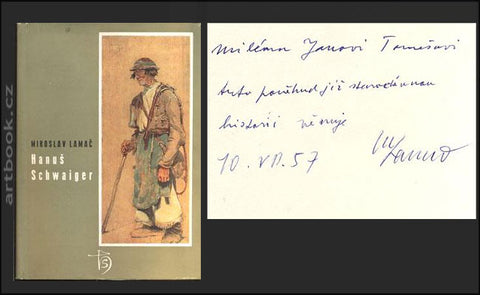 artbook.cz
MIROSLAV LAMAČ
Hanuš
Schwaiger
milému Janovi Tomešovi
tuto poněkud již starodávnou
historii věnuje
10. VII. 57 MLamač